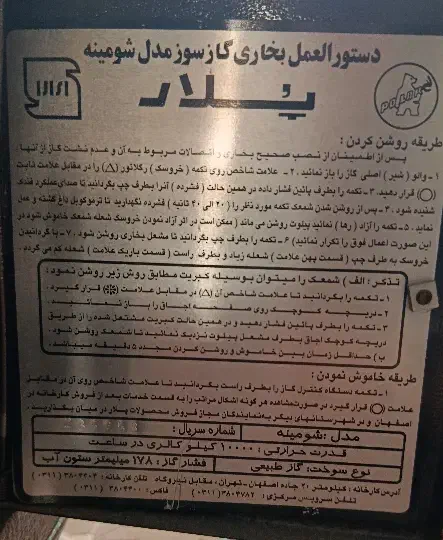 دستورالعمل بخاری گازسوز مدل شومینه
پلار
طریقه روشن کردن:
پس از اطمینان از نصب صحیح بخاری و اتصالات مربوط به آن و عدم نشت گاز از آنها.
۱ - والو (شیر) اصلی گاز را باز نمائید. ۲ - علامت شاخص روی تکمه (خروسک) رگلاتور (△) را در مقابل علامت ثابت
(○) قرار دهید. ۳ - تکمه را بطرف پائین فشار داده در همین حالت (فشرده) آنرا بطرف چپ بگردانید تا صدای عملکرد فندک
شنیده شود. ۴ - پس از روشن شدن شمعک تکمه مورد نظر را (۲۰ الی ۳۰ ثانیه) فشرده نگهدارید تا ترموکوپل داغ گشته و عمل
نماید. ۵ - تکمه را آزاد (رها) نمائید پیلوت روشن می ماند (ممکن است در اثر آزاد نمودن خروسک شعله شمعک خاموش شود در
این صورت اعمال فوق را تکرار نمائید) ۶ - تکمه را بطرف چپ بگردانید تا مشعل بخاری روشن شود. ۷ - با گردانیدن
خروسک به طرف چپ (قسمت پهن علامت) شعله زیاد و بطرف راست (قسمت باریک علامت) شعله کم می گردد.
تذکر: الف) شمعک را میتوان بوسیله کبریت مطابق روش زیر روشن نمود:
۱ - تکمه را بگردانید تا علامت شاخص آن (△) در مقابل علامت (❄) قرار گیرد.
۲ - دریچه کوچک روی صفحه اجاق را باز نمائید.
۳ - تکمه را بطرف پائین فشار دهید و در همین حالت کبریت مشتعل شده را از طریق
دریچه کوچک اجاق بطرف مشعل پیلوت نزدیک نمائید تا شمعک روشن شود.
ب) حداقل زمان بین خاموش و روشن کردن مجدد ۵ دقیقه میباشد.
طریقه خاموش نمودن:
۱ - تکمه دستگاه کنترل گاز را بطرف راست بگردانید تا علامت شاخص روی آن در مقابل
علامت (○) قرار گیرد در صورت مشاهده هر گونه اشکال مراتب را به قسمت خدمات بعد از فروش کارخانه در
اصفهان و در شهرستانهای دیگر به نمایندگان مجاز فروش محصولات پلار در میان بگذارید.
مدل: شومینه شماره سریال:
قدرت حرارتی: ۱۰۰۰۰ کیلو کالری در ساعت
نوع سوخت: گاز طبیعی فشار گاز: ۱۷۸ میلیمتر ستون آب
آدرس کارخانه: کیلومتر ۲۰ جاده اصفهان - تهران، مقابل نیروگاه تلفن کارخانه:
تلفن سرویس مرکزی: (۰۳۱۱) فاکس: (۰۳۱۱)